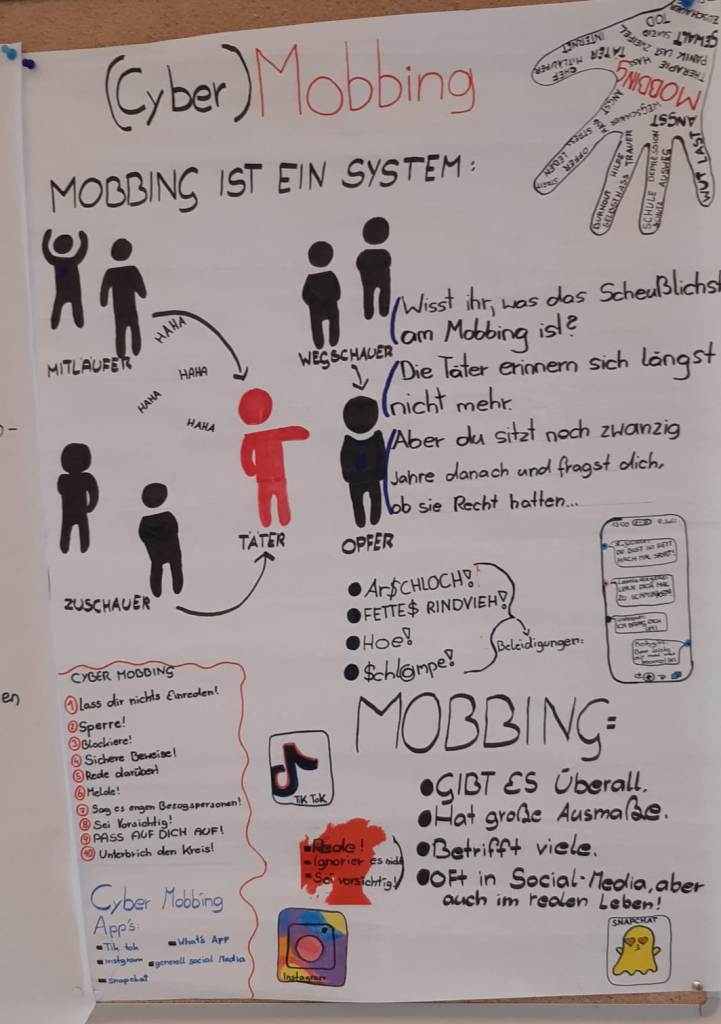 (Cyber) Mobbing
MOBBING IST EIN SYSTEM:
MITLÄUFER
HAHA
HAHA
HAHA
HAHA
WEGSCHAUER
ZUSCHAUER
TÄTER
OPFER
Wisst ihr, was das Scheußlichst
am Mobbing ist?
Die Täter erinnern sich längst
nicht mehr.
Aber du sitzt noch zwanzig
Jahre danach und fragst dich,
ob sie Recht hatten...
ZUSCHAUER
TOD
GEWALT SUIZID
PANIK LAST ZWEIFEL
THERAPIE HASS
TÄTER INTERNET
CHEF MITLÄUFER
MOBBING
WEGSCHAUER
ANGST
ANGST
STRESS LEIDEN
OPFER
BURNOUT HILFE TRAUER
SELBSTHASS
SCHULE DEPRESSION
AUSWEG
WUT LAST
Ar$CHLOCH!
FETTE$ RINDVIEH!
Hoe!
$chl@mpe!
Beleidigungen:
DU BIST SO FETT
MACH MAL SPORT!
LERN DICH MAL
ZU SCHMINKEN!
CYBER MOBBING
1 Lass dir nichts Einreden!
2 Sperre!
3 Blockiere!
4 Sichere Beweise!
5 Rede darüber!
6 Melde!
7 Sag es engen Bezugspersonen!
8 Sei Vorsichtig!
9 PASS AUF DICH AUF!
10 Unterbrich den Kreis!
Cyber Mobbing
App's:
Tik tok
What's App
instgram
generell social Media
snapchat
TIK TOK
Rede!
Ignorier es nicht
Sei vorsichtig!
Instagram
MOBBING:
GIBT ES Überall.
Hat große Ausmaße.
Betrifft viele.
OFt in Social-Media, aber
auch im realen Leben!
SNAPCHAT
en